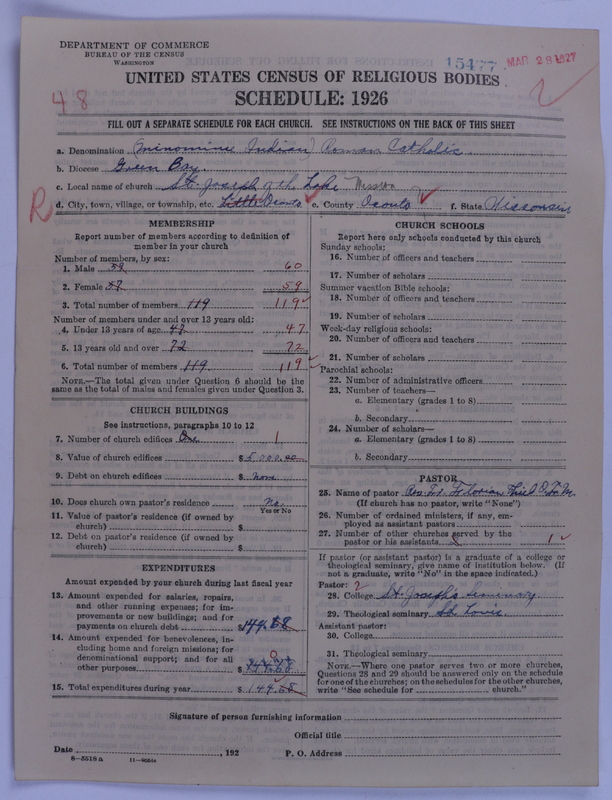 DEPARTMENT OF COMMERCE
BUREAU OF THE CENSUS
WASHINGTON
15477
MAR 28 1927
UNITED STATES CENSUS OF RELIGIOUS BODIES
48
SCHEDULE: 1926
FILL OUT A SEPARATE SCHEDULE FOR EACH CHURCH. SEE INSTRUCTIONS ON THE BACK OF THIS SHEET
a. Denomination (Menominie Indian) Roman Catholic
b. Diocese Green Bay
c. Local name of church St. Joseph of the Lake Mission
R
d. City, town, village, or township, etc. Little Oconto e. County Oconto f. State Wisconsin
MEMBERSHIP
Report number of members according to definition of
member in your church
Number of members, by sex:
1. Male 60
2. Female 59
3. Total number of members 119 119
Number of members under and over 13 years old:
4. Under 13 years of age 47 47
5. 13 years old and over 72 72
6. Total number of members 119 119
NOTE.—The total given under Question 6 should be
same as the total of males and females given under Question 3.
CHURCH BUILDINGS
See instructions, paragraphs 10 to 12
7. Number of church edifices One 1
8. Value of church edifices $5,000.00
9. Debt on church edifices $ none
10. Does church own pastor's residence no
Yes or No
11. Value of pastor's residence (if owned by
church) $
12. Debt on pastor's residence (if owned by
church) $
EXPENDITURES
Amount expended by your church during last fiscal year
13. Amount expended for salaries, repairs,
and other running expenses; for im-
provements or new buildings; and for
payments on church debt $149.68
14. Amount expended for benevolences, in-
cluding home and foreign missions; for
denominational support; and for all
other purposes 0 $
15. Total expenditures during year $149.68
CHURCH SCHOOLS
Report here only schools conducted by this church
Sunday schools:
16. Number of officers and teachers
17. Number of scholars
Summer vacation Bible schools:
18. Number of officers and teachers
19. Number of scholars
Week-day religious schools:
20. Number of officers and teachers
21. Number of scholars
Parochial schools:
22. Number of administrative officers
23. Number of teachers—
a. Elementary (grades 1 to 8)
b. Secondary
24. Number of scholars—
a. Elementary (grades 1 to 8)
b. Secondary
PASTOR
25. Name of pastor Rev. Fr. Florian Thiel O.F.M.
(If church has no pastor, write "None")
26. Number of ordained ministers, if any, em-
ployed as assistant pastors
27. Number of other churches served by the
pastor or his assistants 1
If pastor (or assistant pastor) is a graduate of a college or
theological seminary, give name of institution below. (If
not a graduate, write "No" in the space indicated.)
Pastor:
28. College St. Joseph's Seminary
29. Theological seminary St. Louis.
Assistant pastor:
30. College
31. Theological seminary
NOTE.—Where one pastor serves two or more churches,
Questions 28 and 29 should be answered only on the schedule
for one of the churches; on the schedules for the other churches,
write "See schedule for church."
Signature of person furnishing information
Official title
Date , 192 P. O. Address
8—5518a